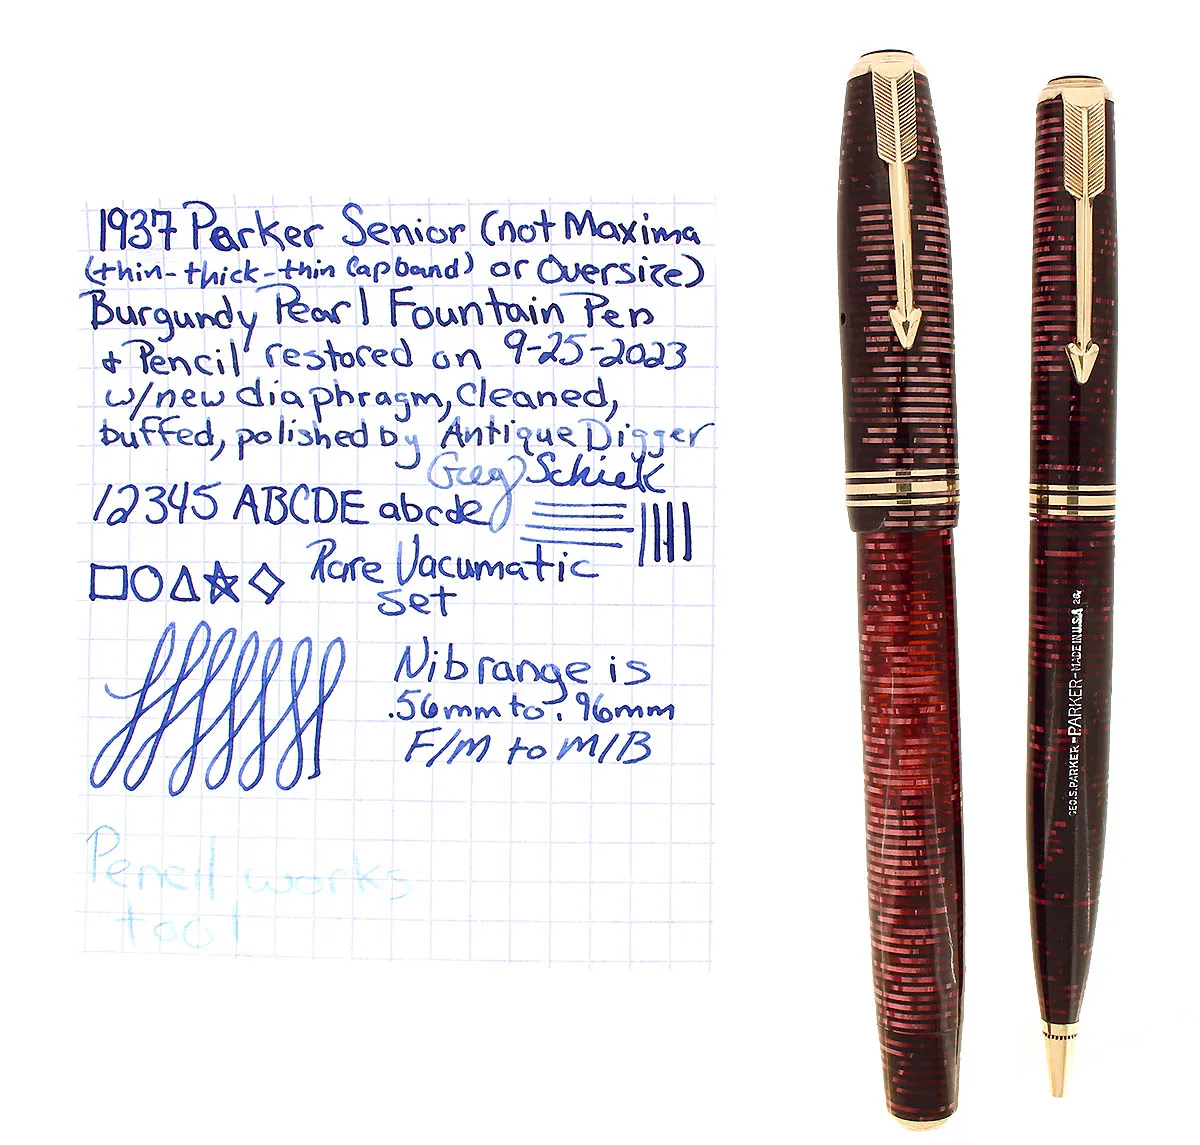 1937 Parker Senior (not Maxima
(thin-thick-thin Capband) or Oversize)
Burgundy Pearl Fountain Pen
& Pencil restored on 9-25-2023
w/new diaphragm, Cleaned,
buffed, polished by Antique Digger
Greg Schiek
12345 ABCDE abcde
Rare Vacumatic
set
Nib range is
.56mm to .96mm
F/M to M/B
Pencil works
too!
GEO.S.PARKER-PARKER-MADE IN U.S.A 26.